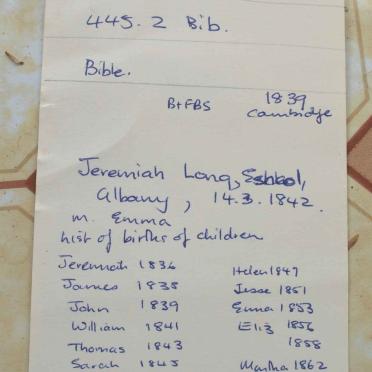 445.2 Bib.
Bible.
B+FBS 1839
Cambridge
Jeremiah Long,
Albany, 14.3.1842.
m. Emma
List of births of children
Jeremiah 1836
James 1838
John 1839
William 1841
Thomas 1843
Sarah 1845
Helen 1847
Jesse 1851
Emma 1853
Eliz 1856
1858
Martha 1862